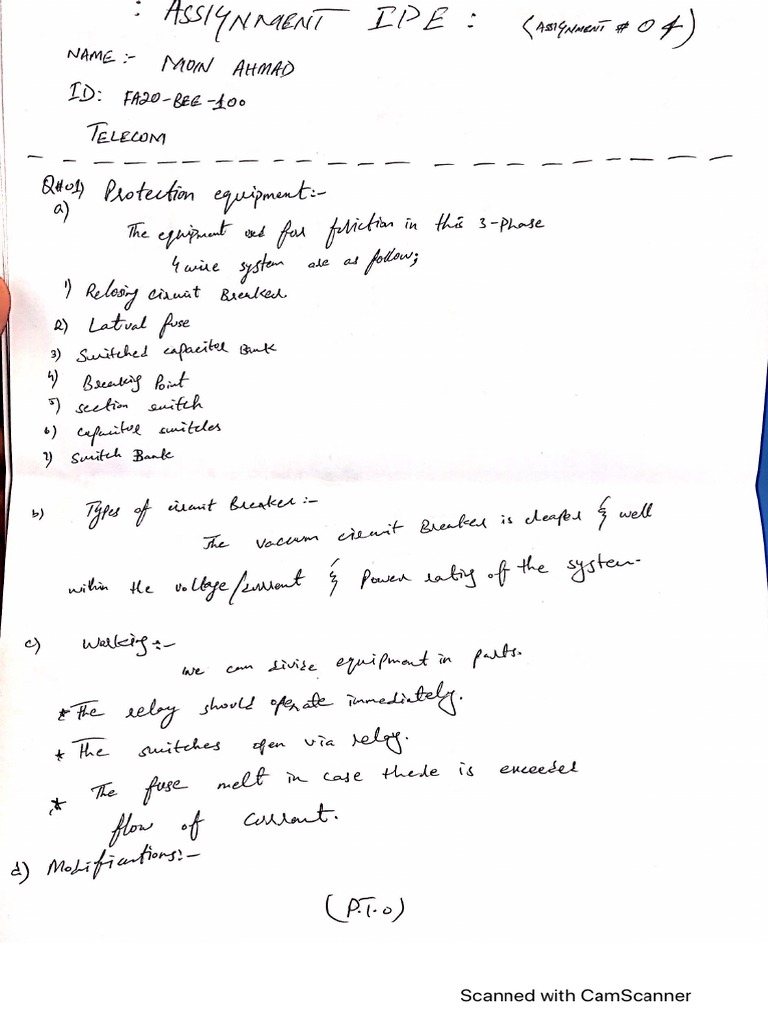 : ASSIGNMENT IDE : (ASSIGNMENT # 04)
NAME :- MOIN AHMAD
ID: FA20-BEE-100
TELECOM
Q#01) Protection equipment:-
a)
The equipment used for in this 3-phase
4 wire system are as follow;
1) Relosing circuit Breaker
2) Latural fuse
3) Switched capacitor Bank
4) Breaking Point
5) section switch
6) capacitor switches
7) Switch Bank
b) Types of circuit Breaker :-
The vaccum circuit Breaker is cheaper & well
within the voltage/current & Power rating of the system.
c) Working :-
we can divide equipment in parts.
* The relay should operate immediately.
* The switches open via relay.
* The fuse melt in case there is exceeded
flow of current.
d) Modifications:-
(P.T.O)
Scanned with CamScanner